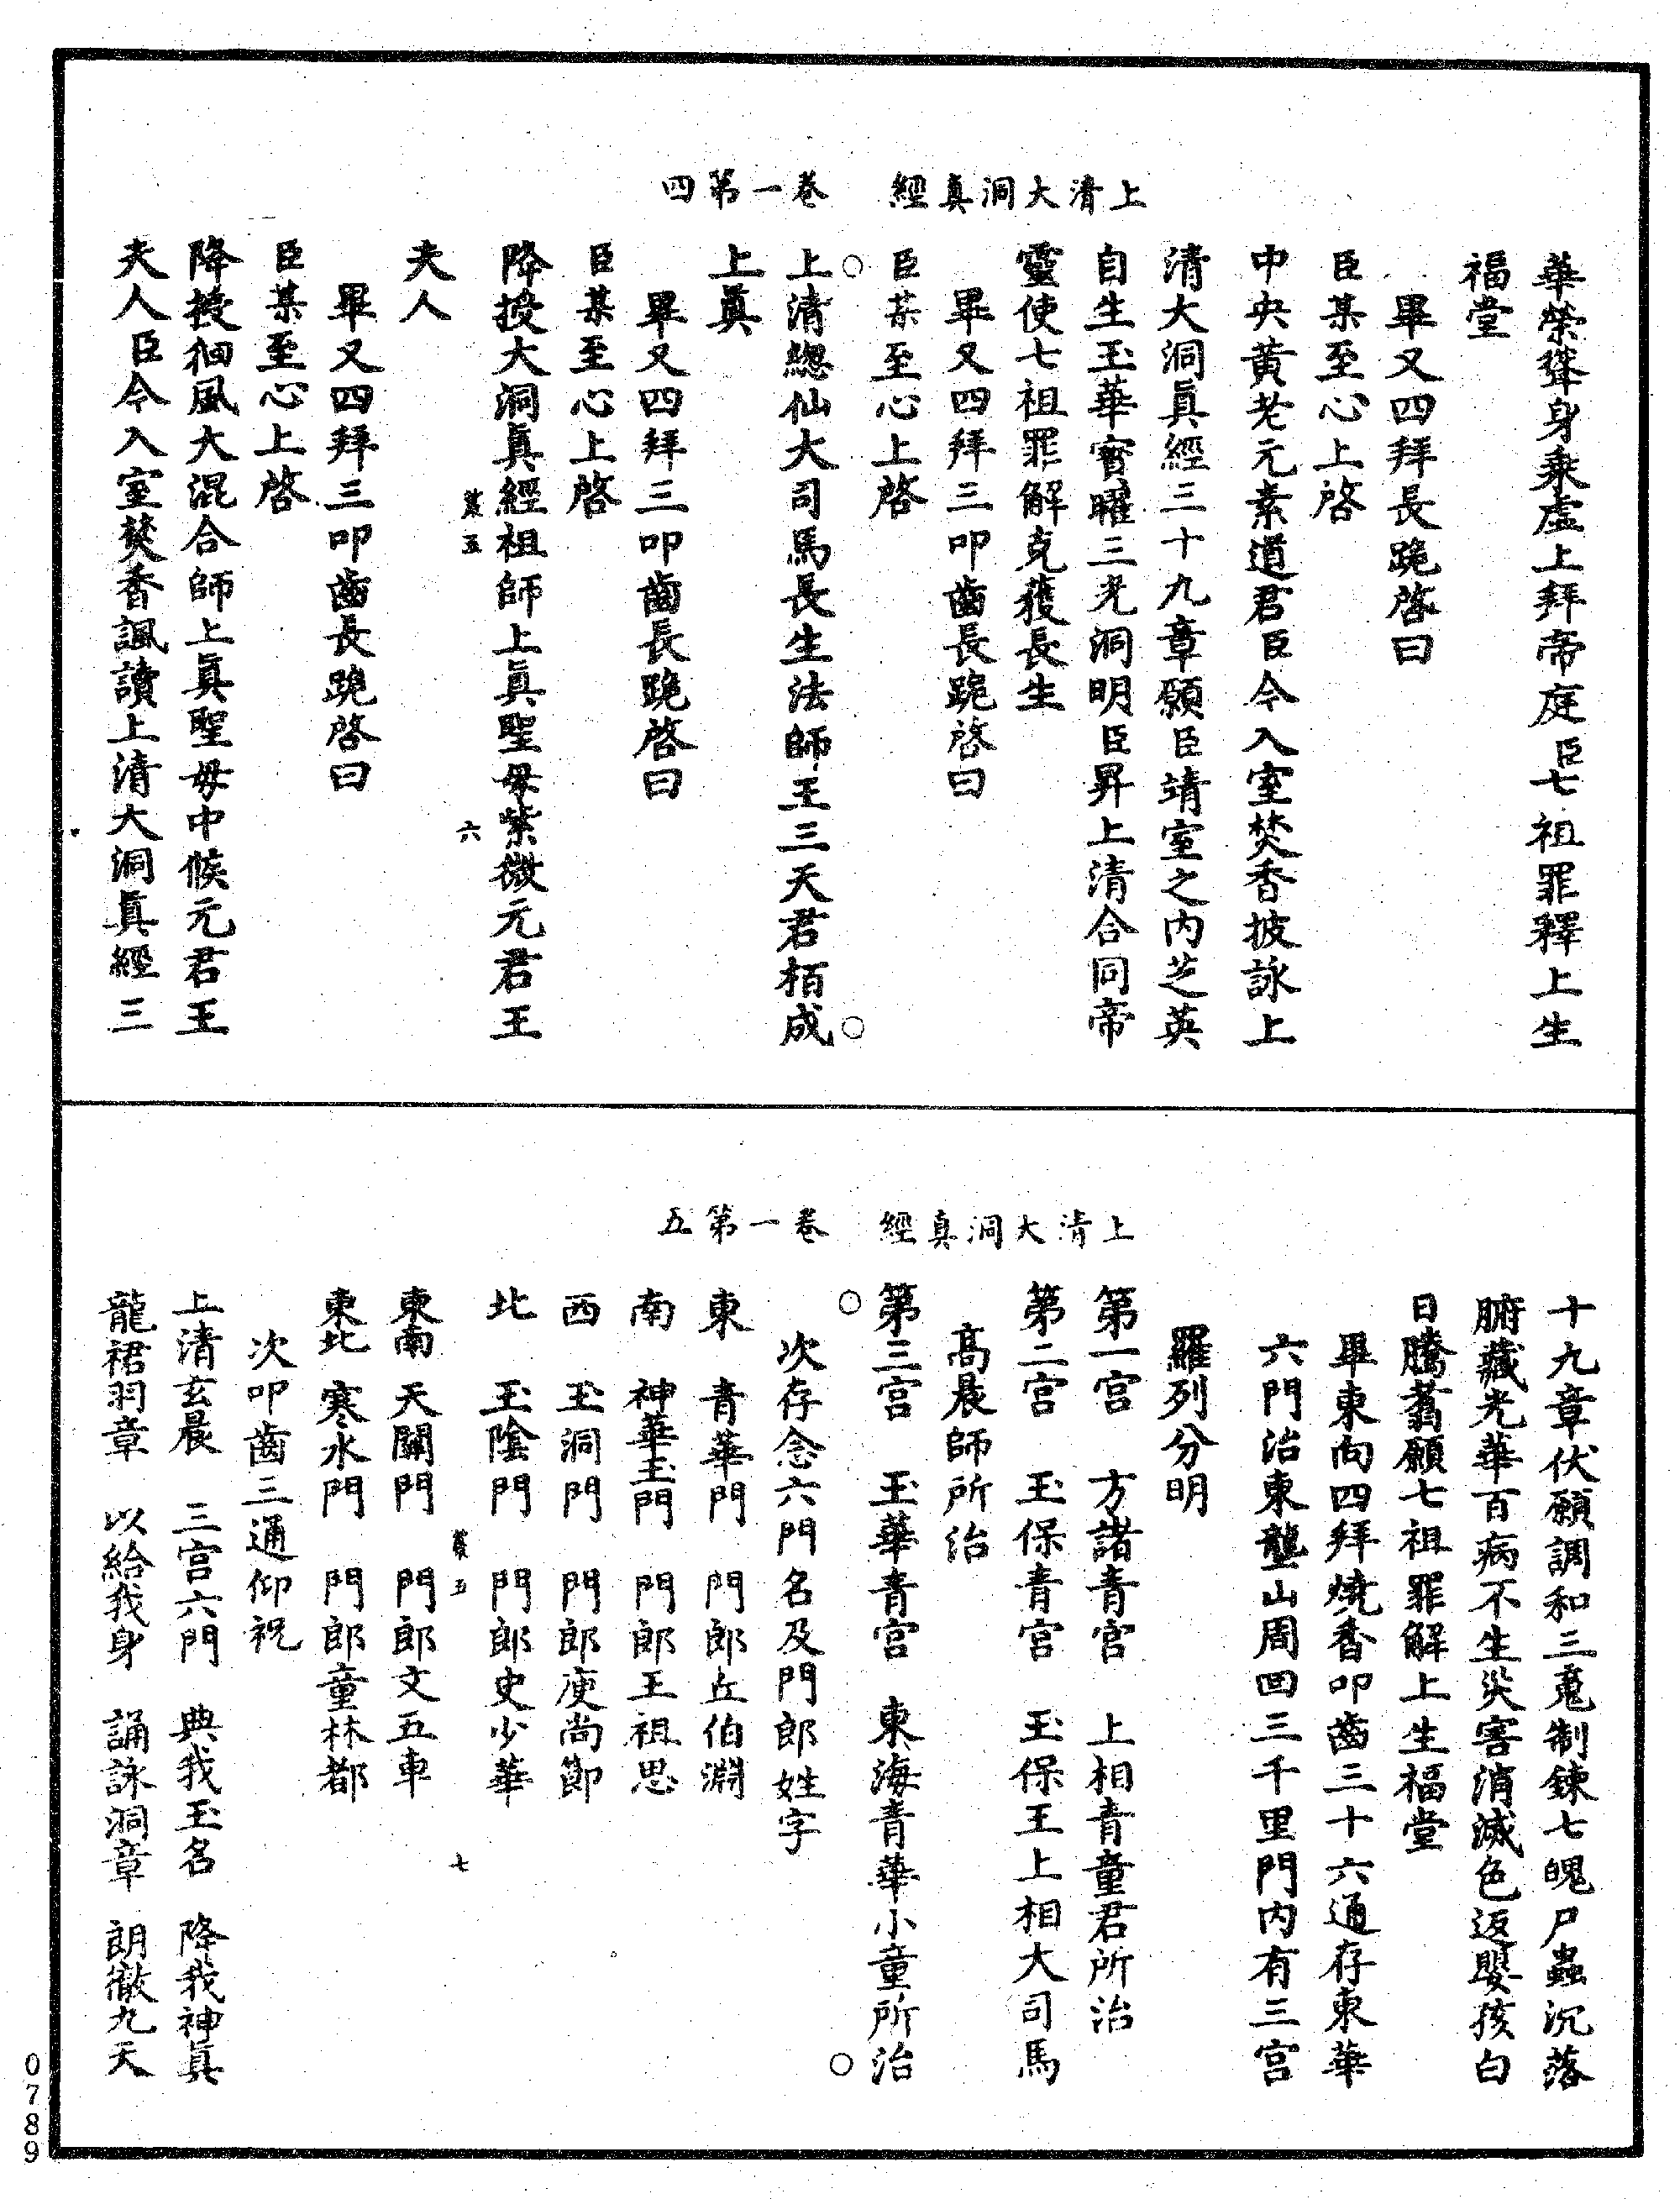 上清大洞真經　卷一第四
華榮聳身乘虛上拜帝庭臣七祖罪釋上生
福堂
畢又四拜長跪啓曰
臣某至心上啓
中央黃老元素道君臣今入室焚香披詠上
清大洞眞經三十九章願臣靖室之内芝英
自生玉華寳曜三光洞明臣昇上清合同帝
靈使七祖罪解克獲長生
畢又四拜三叩齒長跪啓曰
臣某至心上啓
上清緫仙大司馬長生法師王三天君栢成
上眞
畢又四拜三叩齒長跪啓曰
臣某至心上啓
降授大洞眞經祖師上眞聖母紫微元君王
六
夫人
畢又四拜三叩齒長跪啓曰
臣某至心上啓
降授徊風大混合師上眞聖母中候元君王
夫人臣今入室焚香諷讀上清大洞眞經三
上清大洞真經　卷一第五
十九章伏願調和三魂制鍊七魄尸蟲沉落
腑藏光華百病不生災害消滅色返嬰孩白
日騰翥願七祖罪解上生福堂
畢東向四拜燒香叩齒三十六通存東華
六門治東龕山周回三千里門内有三宫
羅列分明
第一宫　方諸青宫　上相青童君所治
第二宫　玉保青宫　玉保王上相大司馬
高晨師所治
第三宫　玉華青宫　東海青華小童所治
次存念六門名及門郎姓字
東　青華門　門郎丘伯淵
南　神華玉門　門郎王祖思
西　玉洞門　門郎庾尚節
北　玉陰門　門郎史少華
七
東南　天關門　門郎文五車
東北　寒水門　門郎童林都
次叩齒三通仰祝
上清玄晨　三宫六門　典我玉名　降我神眞
龍裙羽章　以給我身　誦詠洞章　朗徹九天
0789